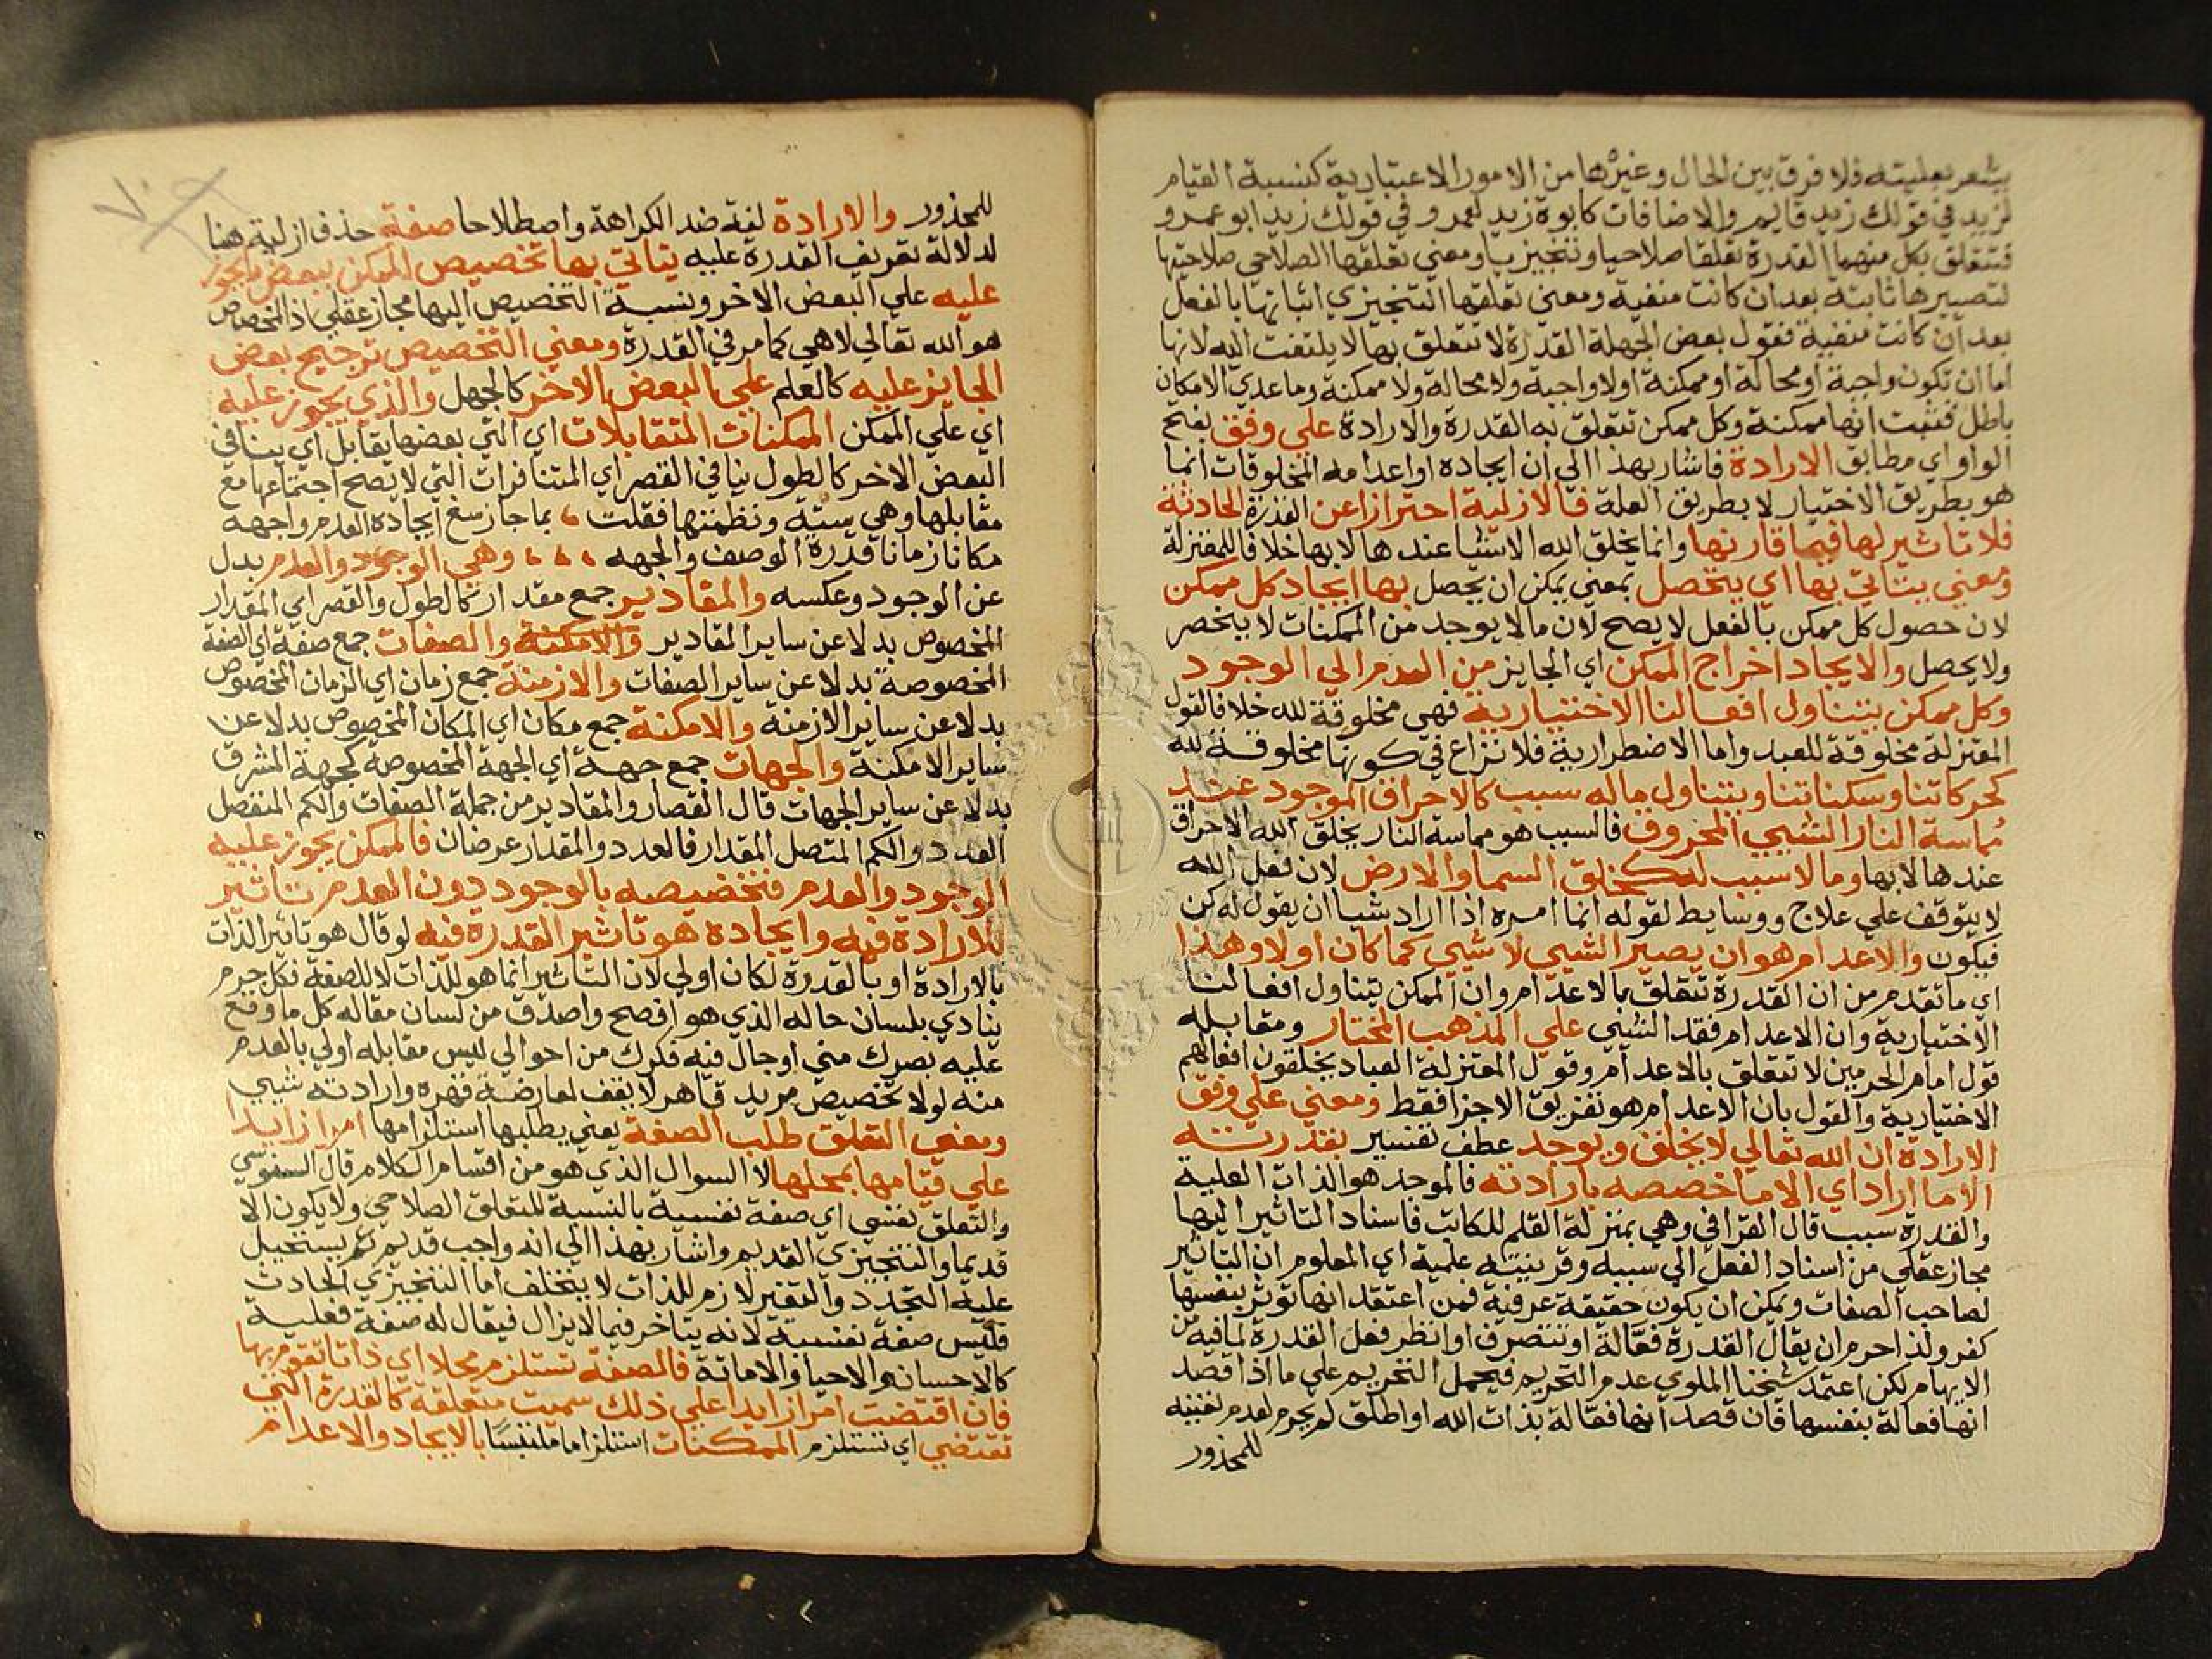 يشعر بعليته فلا فرق بين الحال وغيرها من الامور الاعتبارية كنسبة القيام
لزيد في قولك زيد قايم والاضافات كابوة زيد لعمرو في قولك زيد ابو عمرو
فتتعلق بكل منهما القدرة تعلقا صلاحيا وتنجيزيا ومعني تعلقها الصلاحي صلاحيتها
لتصييرها ثابتة بعد ان كانت منفية ومعني تعلقها التنجيزي اثباتها بالفعل
بعد ان كانت منفية فقول بعض الجهلة القدرة لا تتعلق بها لا يلتفت اليه لانها
اما ان تكون واجبة او محالة او ممكنة او لا واجبة ولا محالة ولا ممكنة وما عدي الامكان
باطل فثبت انها ممكنة وكل ممكن تتعلق به القدرة والارادة علي وفق بفتح
الواو اي مطابق الارادة فاشار بهذا الي ان ايجاده او اعدامه المخلوقات انما
هو بطريق الاختيار لا بطريق العلة فالازلية احترازا عن القدرة الحادثة
فلا تاثير لها فيما قارنها وانما يخلق الله الاشيا عندها لا بها خلافا للمعتزلة
ومعني يتاتي بها اي يتحصل بمعني يمكن ان يحصل بها ايجاد كل ممكن
لان حصول كل ممكن بالفعل لا يصح لان ما لا يوجد من الممكنات لا ينحصر
ولا يحصل والايجاد اخراج الممكن اي الجايز من العدم الي الوجود
وكل ممكن يتناول افعالنا الاختيارية فهي مخلوقة لله خلافا لقول
المعتزلة مخلوقة للعبد واما الاضطرارية فلا نزاع في كونها مخلوقة لله
كحركاتنا وسكناتنا ويتناول ماله سبب كالاحراق الموجود عند
مماسة النار الشيي المحروق فالسبب هو مماسة النار يخلق الله الاحراق
عندها لا بها وما لا سبب له كخلق السما والارض لان فعل الله
لا يتوقف علي علاج ووسايط لقوله انما امره اذا اراد شيا ان يقول له كن
فيكون والاعدام هو ان يصير الشيي لا شيي كما كان اولا وهذا
اي ما تقدم من ان القدرة تتعلق بالاعدام وان الممكن يتناول افعالنا
الاختيارية وان الاعدام فقد الشيي علي المذهب المختار ومقابله
قول امام الحرمين لا تتعلق بالاعدام وقول المعتزلة العباد يخلقون افعالهم
الاختيارية والقول بان الاعدام هو تفريق الاجزا فقط ومعني علي وفق
الارادة ان الله تعالي لا يخلق ويوجد عطف تفسير بقدرته
الا ما اراد اي الا ما خصصه بارادته فالموجد هو الذات العلية
والقدرة سبب قال القرافي وهي بمنزلة القلم للكاتب فاسناد التاثير اليها
مجاز عقلي من اسناد الفعل الي سببه وقرينته علمية اي المعلوم ان التاثير
لصاحب الصفات ويمكن ان يكون حقيقة عرفية فمن اعتقد انها توثر بنفسها
كفر ولذا حرم ان يقال القدرة فعالة او تتصرف او انظر فعل القدرة لما فيه من
الايهام لكن اعتمد شيخنا الملوي عدم التحريم فيحمل التحريم علي ما اذا قصد
انها فعالة بنفسها فان قصد انها فعالة بذات الله او اطلق لم يحرم لعدم
للمحذور
للمحذور والارادة لغة ضد الكراهة واصطلاحا صفة حذف ازلية هنا
لدلالة تعريف القدرة عليه يتاتي بها تخصيص الممكن ببعض ما يجوز
عليه علي البعض الاخر ونسبة التخصيص اليها مجاز عقلي اذ المخصص
هو الله تعالي لا هي كما مر في القدرة ومعني التخصيص ترجيح بعض
الجايز عليه كالعلم علي البعض الاخر كالجهل والذي يجوز عليه
اي علي الممكن الممكنات المتقابلات اي التي بعضها يقابل اي ينافي
البعض الاخر كالطول ينافي القصر اي المتنافرات التي لا يصح اجتماعها مع
مقابلها وهي ستة ونظمتها فقلت ، بما جاز سغ ايجاده العدم واجهه
مكانا زمانا قدرة الوصف والجهه ، ، ، وهي الوجود والعدم بدل
عن الوجود وعكسه والمقادير جمع مقدار كالطول والقصر اي المقدار
المخصوص بدلا عن ساير المقادير والامكنة والصفات جمع صفة اي الصفة
المخصوصة بدلا عن ساير الصفات والازمنة جمع زمان اي الزمان المخصوص
بدلا عن ساير الازمنة والامكنة جمع مكان اي المكان المخصوص بدلا عن
ساير الامكنة والجهات جمع جهة اي الجهة المخصوصة كجهة المشرق
بدلا عن ساير الجهات قال القصار والمقادير من جملة الصفات والكم المنفصل
العدد والكم المتصل المقدار فالعدد والمقدار عرضان فالممكن يجوز عليه
الوجود والعدم فتخصيصه بالوجود دون العدم تاثير
للارادة فيه وايجاده هو تاثير القدرة فيه لو قال هو تاثير الذات
بالارادة او بالقدرة لكان اولي لان التاثير انما هو للذات لا للصفة فكل جرم
ينادي بلسان حاله الذي هو افصح واصدق من لسان مقاله كل ما وقع
عليه بصرك مني او جال فيه فكرك من احوالي ليس مقابله اولي بالعدم
منه لولا تخصيص مريد قاهر لا يقف لمعارضة قهره وارادته شيي
ومعني التعلق طلب الصفة يعني بطلبها استلزامها امرا زايدا
علي قيامها بمحلها لا السوال الذي هو من اقسام الكلام قال السنوسي
والتعلق نفسي اي صفة نفسية بالنسبة للمتعلق الصلاحي ولا يكون الا
قديما والتنجيزي القديم واشار بهذا الي انه واجب قديم يستحيل
عليه التجدد والتغير لازم للذات لا يتخلف اما التنجيزي الحادث
فليس صفة نفسية لانه يتاخر فيما لا يزال فيقال له صفة فعلية
كالاحسان والاحيا والاماتة فالصفة تستلزم محلا اي ذاتا تقوم بها
فان اقتضت امرا زايدا علي ذلك سميت متعلقة كالقدرة التي
تقتضي اي تستلزم الممكنات استلزاما ملتبسا بالايجاد والاعدام